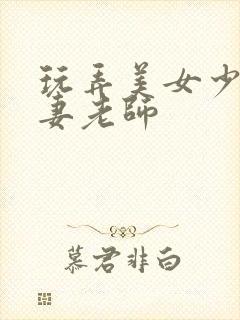 玩弄美女少
妻老師
慕君非白